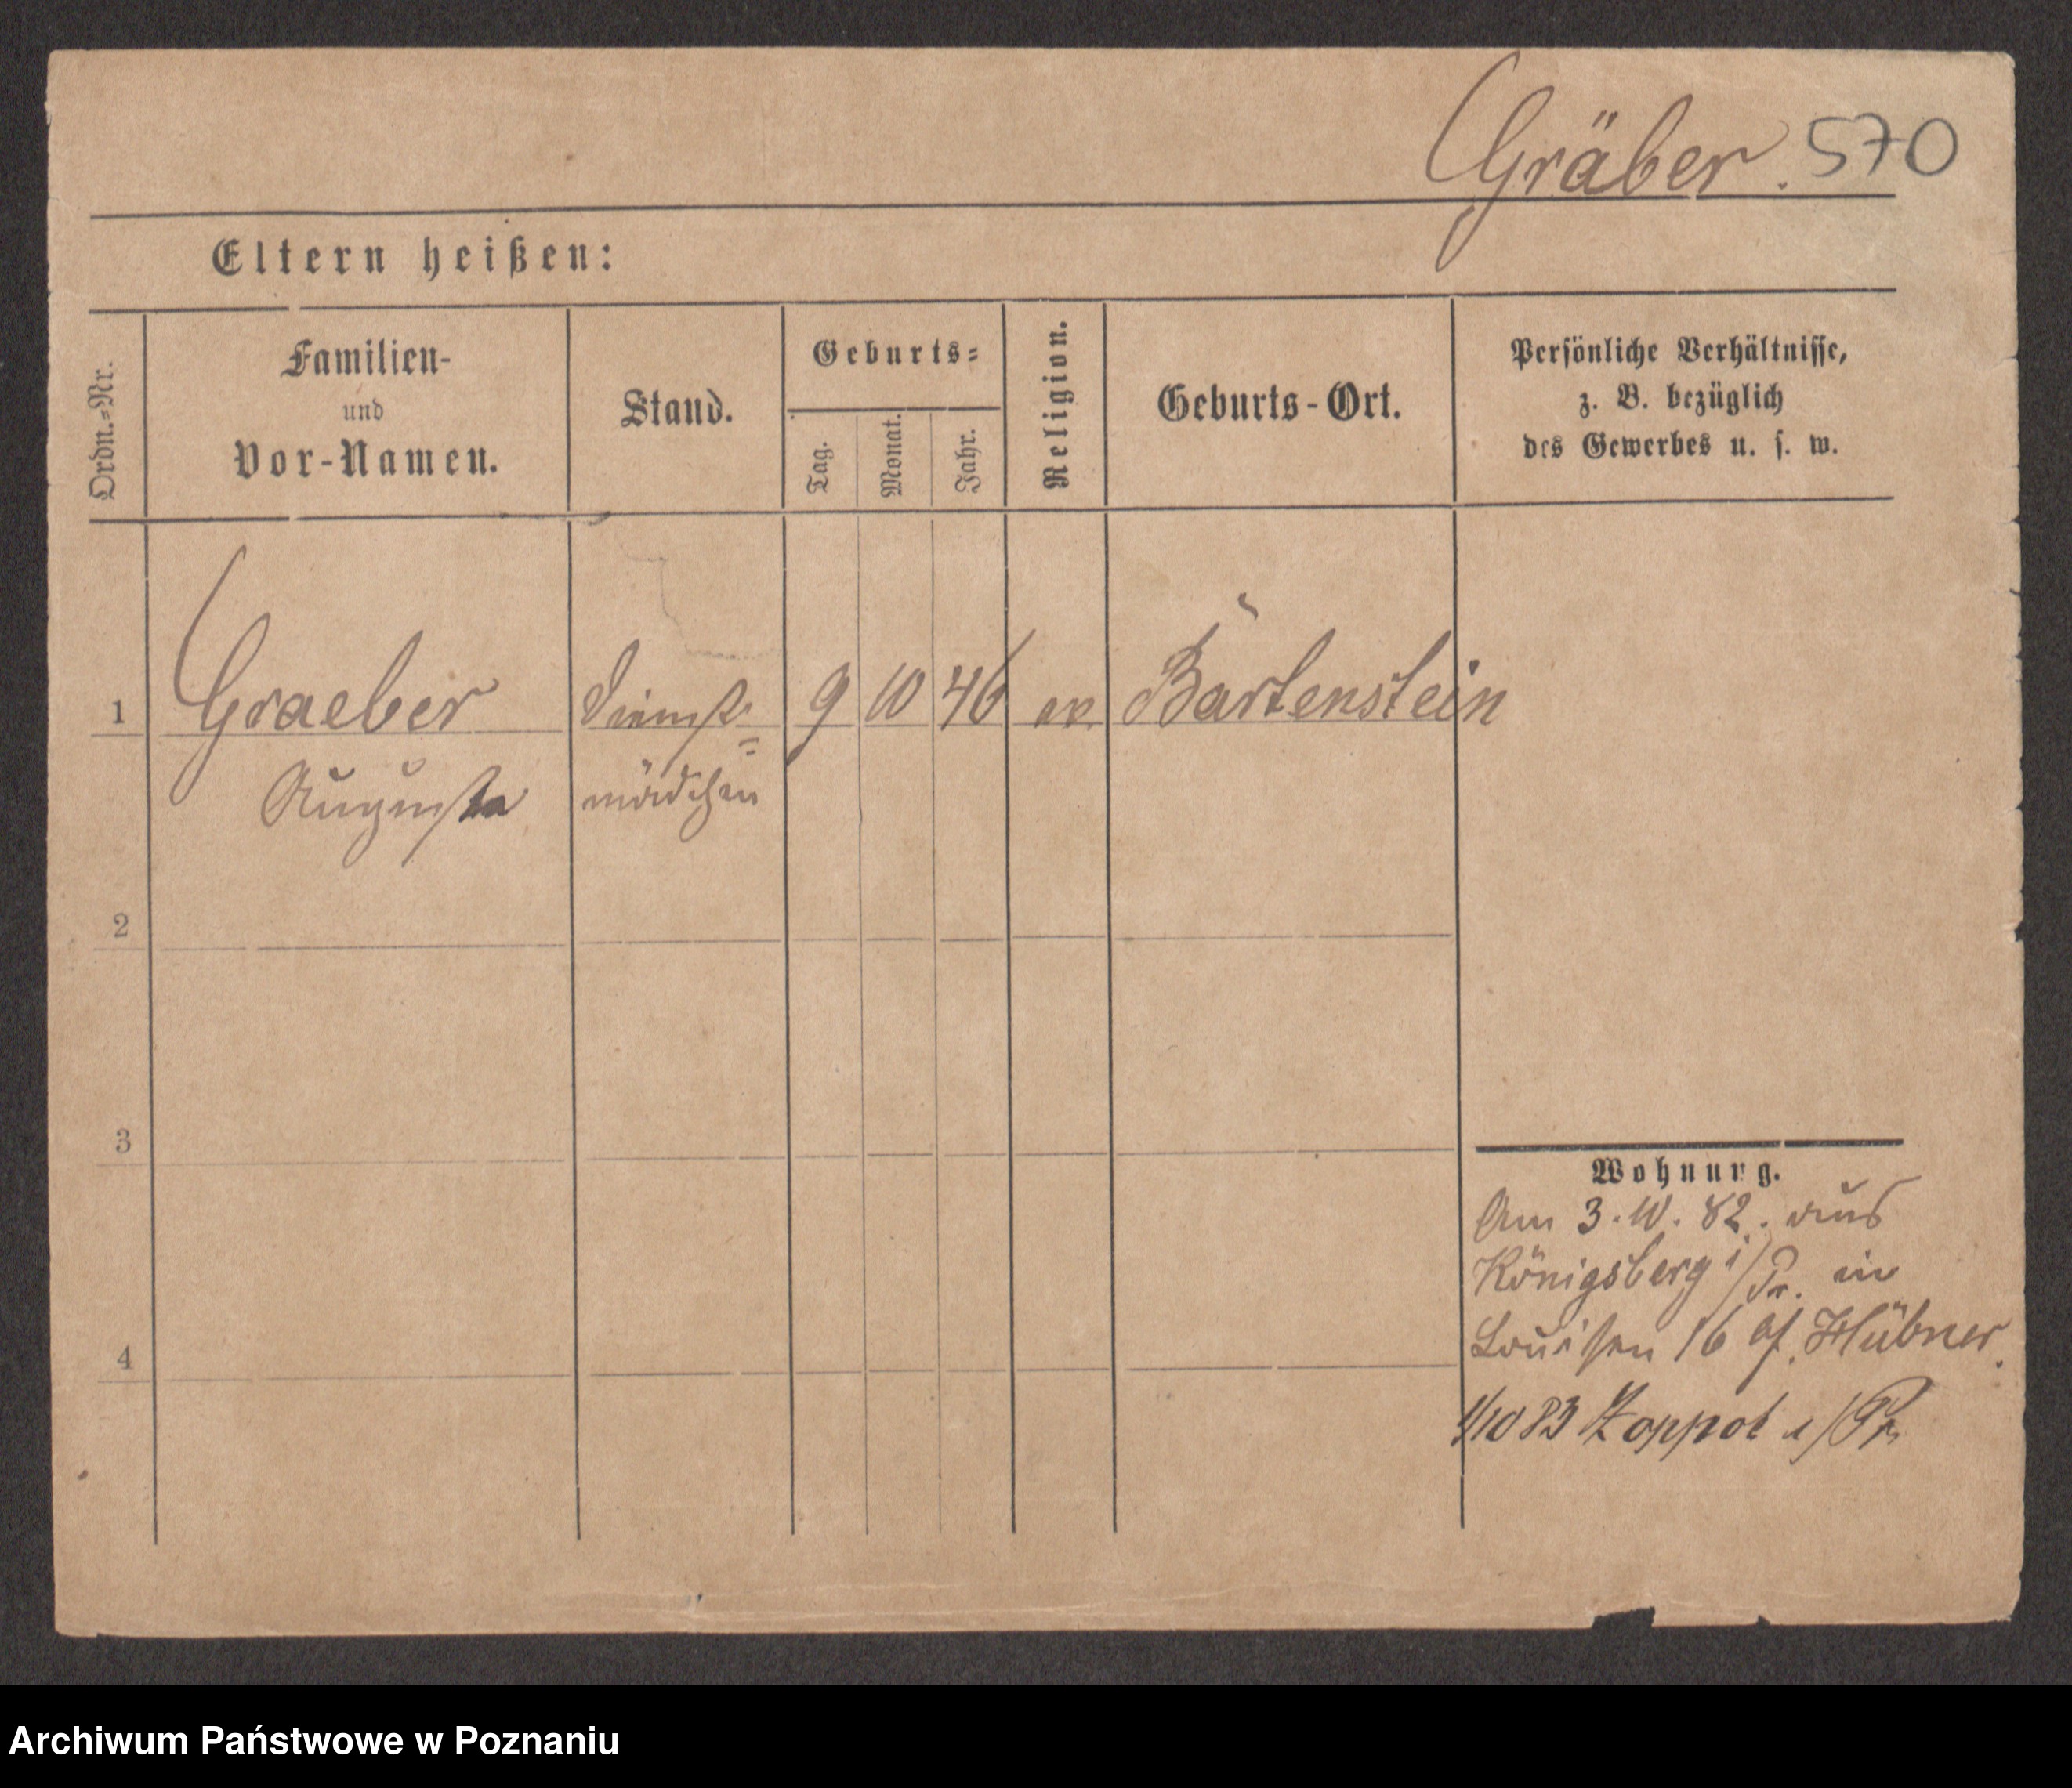 Gräber. 570
Eltern heißen:
Ordn.=Nr.
Familien-
und
Vor-Namen.
Stand.
Geburts=
Tag.
Monat.
Jahr.
Religion.
Geburts-Ort.
Persönliche Verhältnisse,
z. B. bezüglich
des Gewerbes u. s. w.
1 Graeber Dienst= 9 10 46 ev. Bartenstein
Auguste mädchen
2
3
4
Wohnung.
Am 3.10.82. aus
Königsberg i/Pr. in
Louisen 16 Hübner.
1/10 83 Zoppot i/Pr
Archiwum Państwowe w Poznaniu